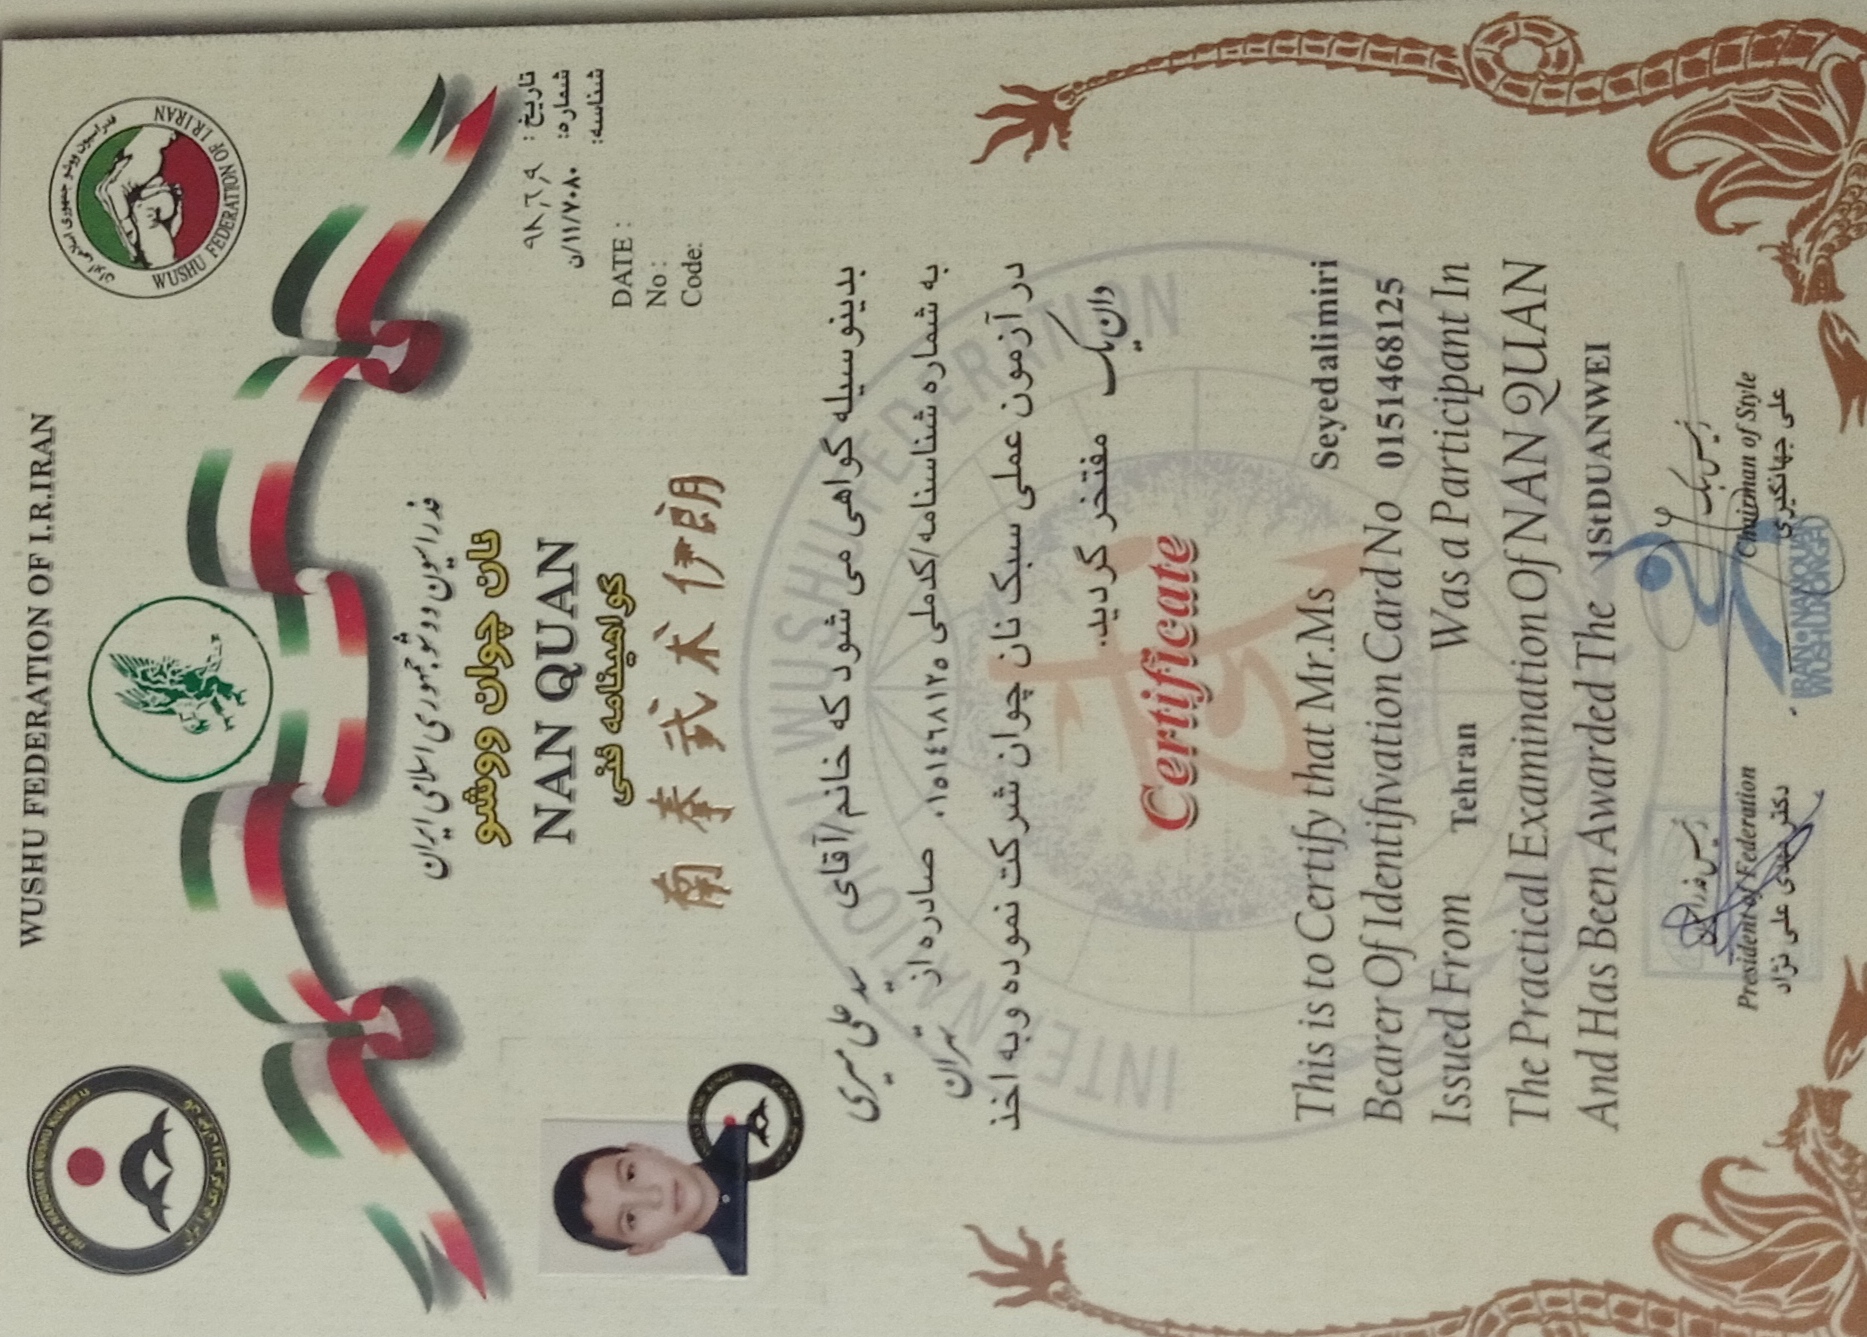 WUSHU FEDERATION OF I.R.IRAN
فدراسیون ووشو جمهوری اسلامی ایران
WUSHU FEDERATION OF I.R.IRAN
فدراسیون ووشو جمهوری اسلامی ایران
نان چوان ووشو
NAN QUAN
گواهینامه فنی
南拳武术伊朗
تاریخ : ۹۸,۶,۹
شماره: ۱۱/۷۰۸۰/ن
شناسه:
DATE :
No :
Code:
بدینوسیله گواهی می شود که خانم/آقای سید علی میری
به شماره شناسنامه/کدملی ۰۱۵۱٤٦۸۱۲۵ صادره از تهران
در آزمون عملی سبک نان چوان شرکت نموده وبه اخذ
دان یک مفتخر گردید.
INTERNATIONAL WUSHU FEDERATION
Certificate
This is to Certify that Mr.Ms Seyed ali miri
Bearer Of Identifivation Card No 0151468125
Issued From Tehran Was a Participant In
The Practical Examination Of NAN QUAN
And Has Been Awarded The 1St DUANWEI
رئیس سبک
Chairman of Style
علی جهانگیری
President of Federation
دکتر مهدی علی نژاد